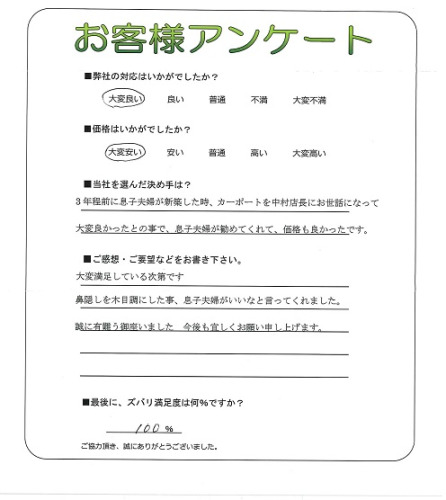 お客様アンケート
■弊社の対応はいかがでしたか?
大変良い 良い 普通 不満 大変不満
■価格はいかがでしたか?
大変安い 安い 普通 高い 大変高い
■当社を選んだ決め手は?
3年程前に息子夫婦が新築した時、カーポートを中村店長にお世話になって
大変良かったとの事で、息子夫婦が勧めてくれて、価格も良かったです。
■ご感想・ご要望などをお書き下さい。
大変満足している次第です
鼻隠しを木目調にした事、息子夫婦がいいなと言ってくれました。
誠に有難う御座いました 今後も宜しくお願い申し上げます。
■最後に、ズバリ満足度は何%ですか?
100 %
ご協力頂き、誠にありがとうございました。